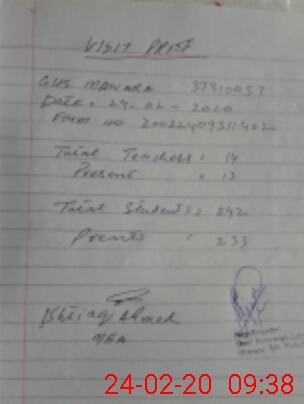 VISIT PROOF
GHS 37310057
Date: 24-02-2020
Form no 20022409511402
Total Teachers: 14
Present : 13
Total Students: 242
: 233
Ishtiaq Ahmed
MEA
24-02-20 09:38